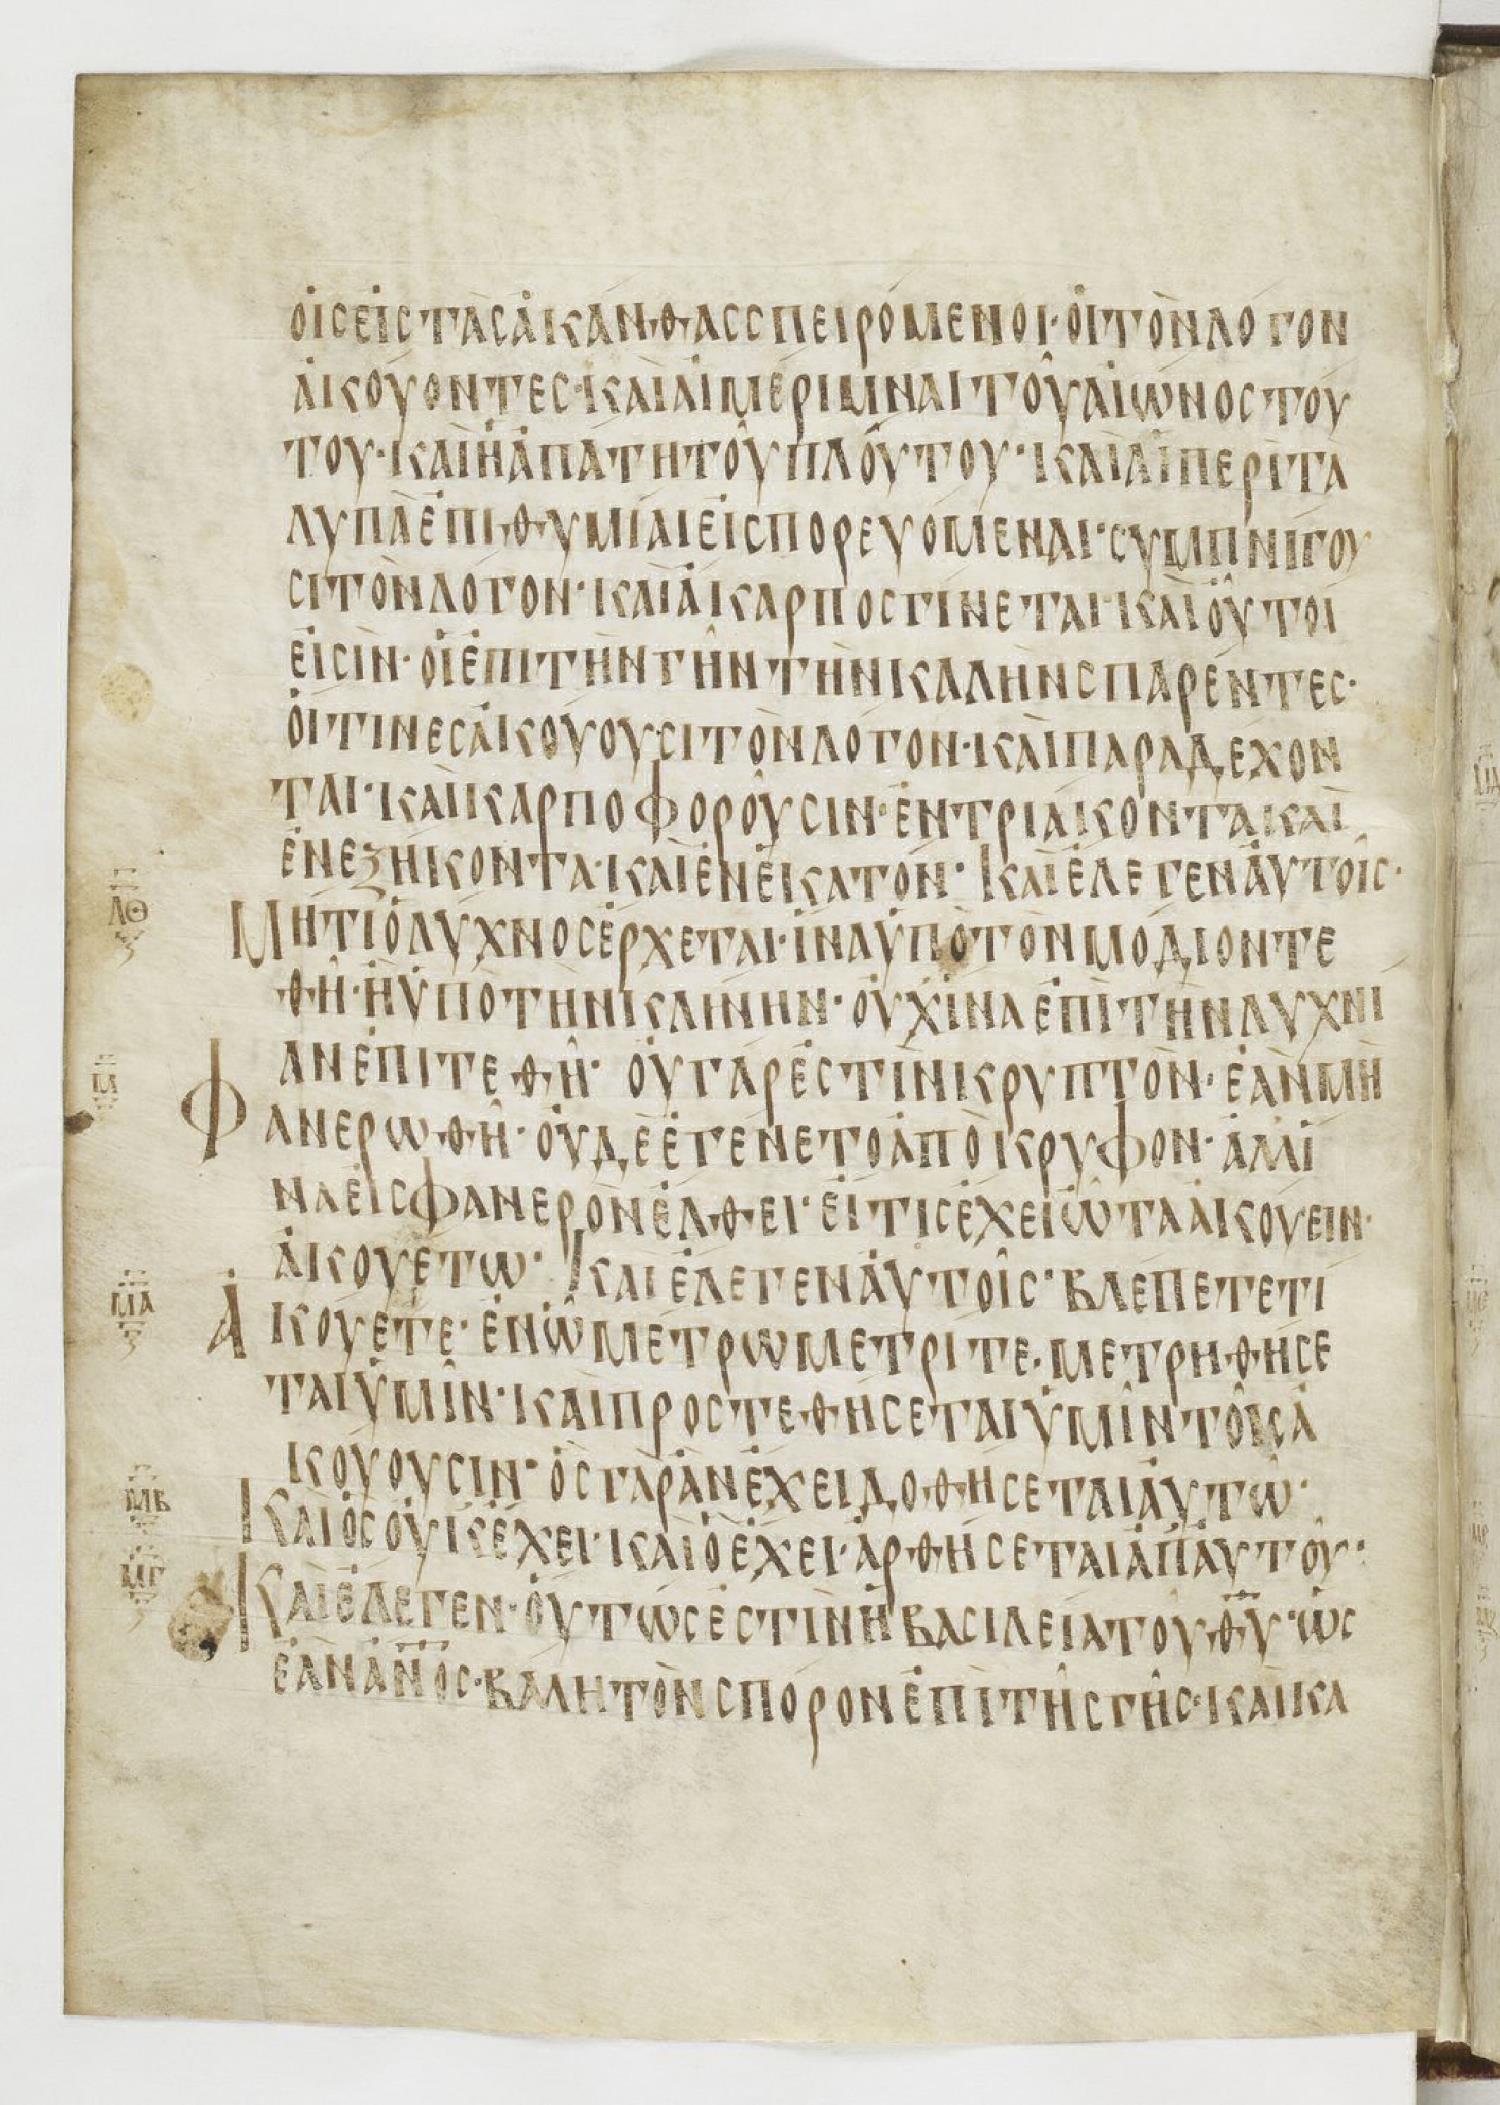 ΟΙΣΕΙΣΤΑΣΑΚΑΝΘΑΣΣΠΕΙΡΟΜΕΝΟΙ·ΟΙΤΟΝΛΟΓΟΝ
ΑΚΟΥΟΝΤΕΣ·ΚΑΙΑΙΜΕΡΙΜΝΑΙΤΟΥΑΙΩΝΟΣΤΟΥ
ΤΟΥ·ΚΑΙΗΑΠΑΤΗΤΟΥΠΛΟΥΤΟΥ·ΚΑΙΑΙΠΕΡΙΤΑ
ΛΥΠΑΕΠΙΘΥΜΙΑΙΕΙΣΠΟΡΕΥΟΜΕΝΑΙ·ΣΥΜΠΝΙΓΟΥ
ΣΙΤΟΝΛΟΓΟΝ·ΚΑΙΑΚΑΡΠΟΣΓΙΝΕΤΑΙ·ΚΑΙΟΥΤΟΙ
ΕΙΣΙΝ·ΟΙΕΠΙΤΗΝΓΗΝΤΗΝΚΑΛΗΝΣΠΑΡΕΝΤΕΣ·
ΟΙΤΙΝΕΣΑΚΟΥΟΥΣΙΤΟΝΛΟΓΟΝ·ΚΑΙΠΑΡΑΔΕΧΟΝ
ΤΑΙ·ΚΑΙΚΑΡΠΟΦΟΡΟΥΣΙΝ·ΕΝΤΡΙΑΚΟΝΤΑΚΑΙ
ΕΝΕΞΗΚΟΝΤΑ·ΚΑΙΕΝΕΚΑΤΟΝ· ΚΑΙΕΛΕΓΕΝΑΥΤΟΙΣ·
ΛΘ ΜΗΤΙΟΛΥΧΝΟΣΕΡΧΕΤΑΙ·ΙΝΑΥΠΟΤΟΝΜΟΔΙΟΝΤΕ
ΘΗ·ΗΥΠΟΤΗΝΚΛΙΝΗΝ·ΟΥΧΙΝΑΕΠΙΤΗΝΛΥΧΝΙ
Μ ΑΝΕΠΙΤΕΘΗ· ΟΥΓΑΡΕΣΤΙΝΚΡΥΠΤΟΝ·ΕΑΝΜΗ
ΦΑΝΕΡΩΘΗ·ΟΥΔΕΕΓΕΝΕΤΟΑΠΟΚΡΥΦΟΝ·ΑΛΛΙ
ΝΑΕΙΣΦΑΝΕΡΟΝΕΛΘΕΙ·ΕΙΤΙΣΕΧΕΙΩΤΑΑΚΟΥΕΙΝ·
ΑΚΟΥΕΤΩ· ΚΑΙΕΛΕΓΕΝΑΥΤΟΙΣ·ΒΛΕΠΕΤΕΤΙ
ΜΑ ΑΚΟΥΕΤΕ·ΕΝΩΜΕΤΡΩΜΕΤΡΙΤΕ·ΜΕΤΡΗΘΗΣΕ
ΤΑΙΥΜΙΝ·ΚΑΙΠΡΟΣΤΕΘΗΣΕΤΑΙΥΜΙΝΤΟΙΣΑ
ΚΟΥΟΥΣΙΝ·ΟΣΓΑΡΑΝΕΧΕΙΔΟΘΗΣΕΤΑΙΑΥΤΩ·
ΜΒ ΚΑΙΟΣΟΥΚΕΧΕΙ·ΚΑΙΟΕΧΕΙ·ΑΡΘΗΣΕΤΑΙΑΠΑΥΤΟΥ:
ΜΓ ΚΑΙΕΛΕΓΕΝ·ΟΥΤΩΣΕΣΤΙΝΗΒΑΣΙΛΕΙΑΤΟΥΘΥ·ΩΣ
ΕΑΝΑΝΟΣ·ΒΑΛΗΤΟΝΣΠΟΡΟΝΕΠΙΤΗΣΓΗΣ·ΚΑΙΚΑ